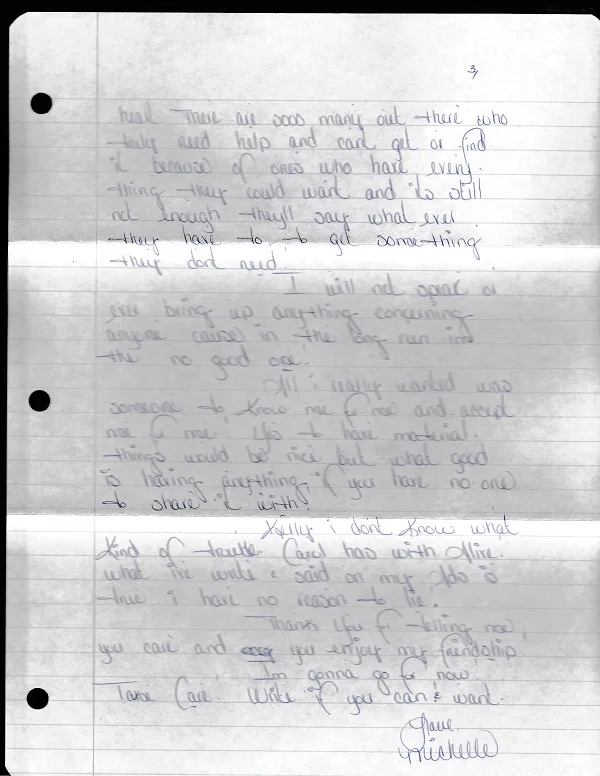 3,
heal There are sooo many out there who
truly need help and cant get or find
it because of ones who have every.
thing they could want and its still
not enough they'll say what ever
they have to, to get something
they dont need.
I will not speak or
ever bring up anything concerning
anyone cause in the long run im
the no good one.
All i really wanted was
someone to know me for me and accept
me for me. Yes to have material.
things would be nice but what good
is having anything, if you have no one
to share it with!
Kelly i dont know what
kind of Carol has with Alive.
what i've write & said on my is
true i have no reason to lie.
Thanks You for telling me,
you care and you enjoy my friendship
I'm gonna go for now
Take Care. Write if you can & want.
Michelle